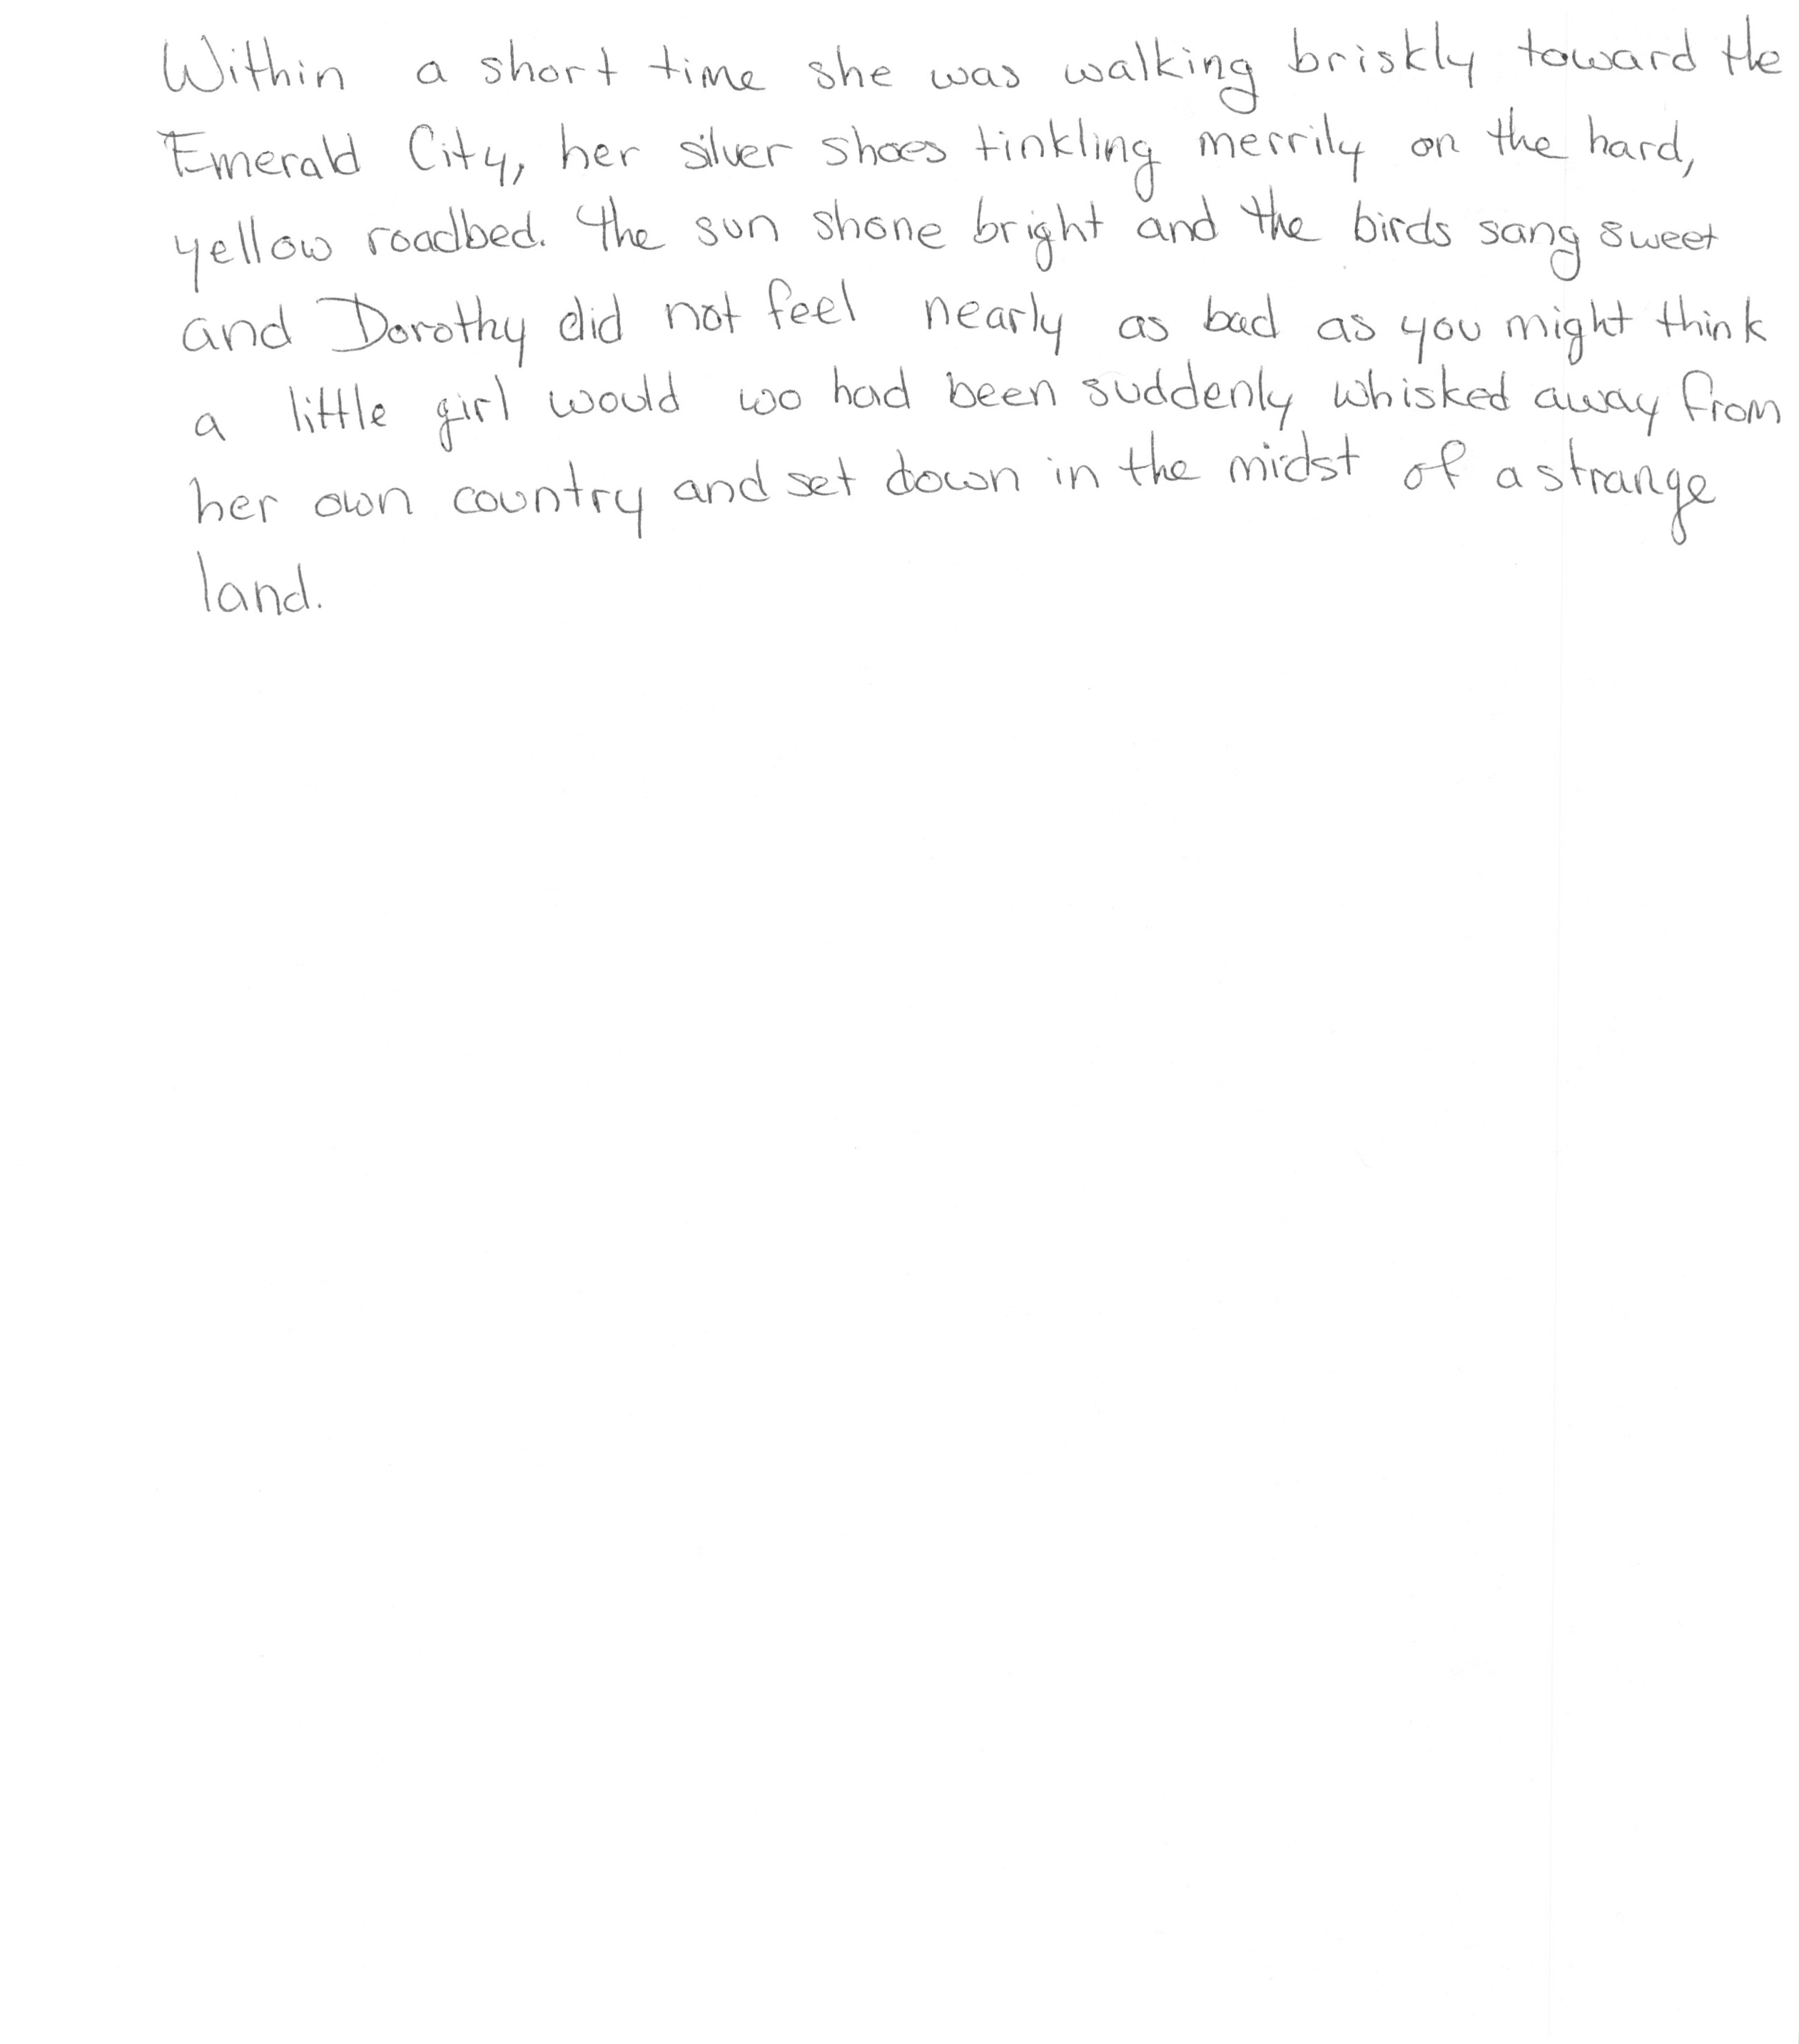 Within a short time she was walking briskly toward the
Emerald City, her silver shoes tinkling merrily on the hard,
yellow roadbed. The sun shone bright and the birds sang sweet
and Dorothy did not feel nearly as bad as you might think
a little girl would wo had been suddenly whisked away from
her own country and set down in the midst of a strange
land.